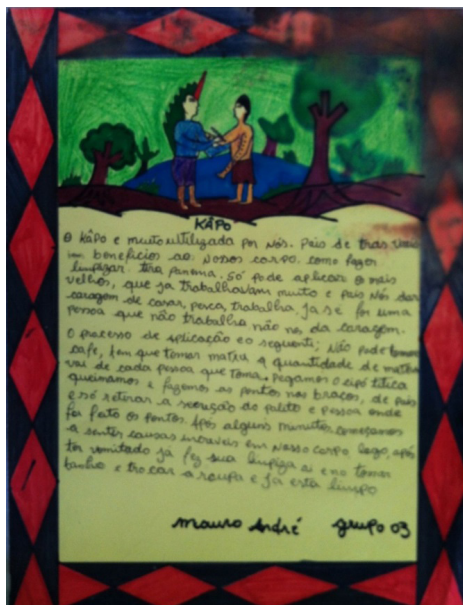 KÂPO
O KÂPO e muito utilizada por nós. Pois se tras varios
benefícios ao nosso corpo. como fazer
limpizar. tira panema. só pode aplicar o mais
velhos, que já trabalhavam muito e pais nós dar
coragem de casar, pesca, trabalha. já se for uma
pessoa que não trabalha não nos da coragem.
O processo de aplicação eo seguenti; Não pode tomar
cafe, tem que tomar matxu a quantidade de matxu
vai de cada pessoa que toma. Pegamos o cipó titica
queimamos e fagemos os pontos nos braços, de pois
e só retirar a secreção do palito e pessoa onde
foi feito os pontos. Após alguns minutos, começamos
a sentir causas incriveis em nosso corpo logo, após
ter vomitado já fez sua limpiza ai e no tomar
banho e trocar a roupa e já esta limpo
mauro André grupo 03